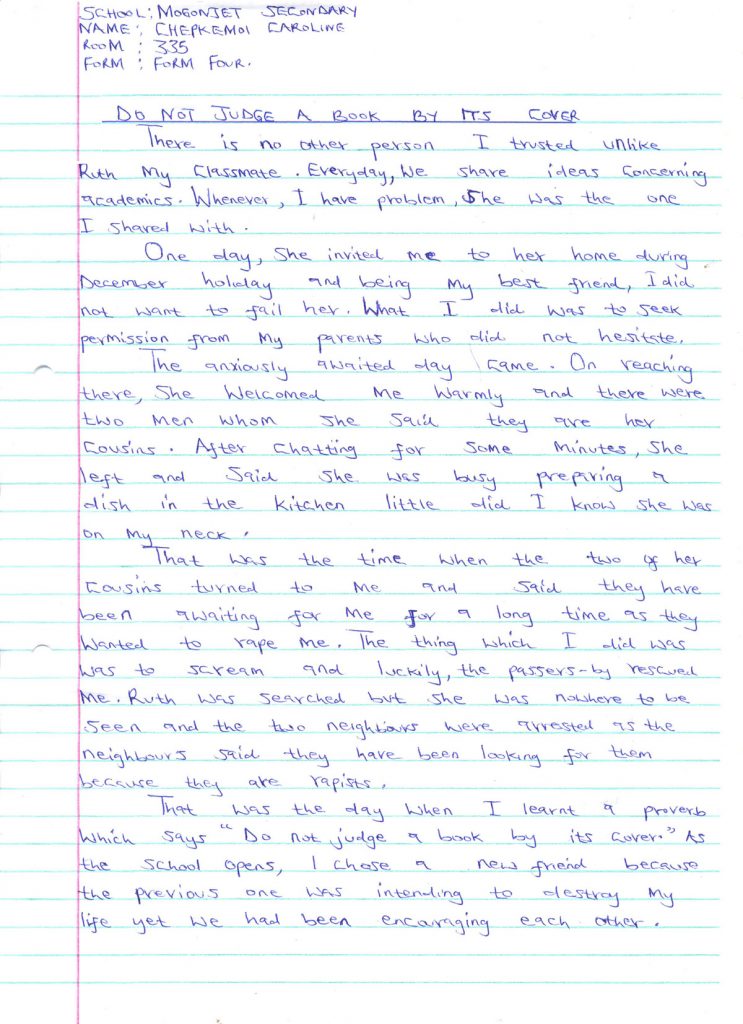 SCHOOL: MOGONJET SECONDARY
NAME: CHEPKEMOI CAROLINE
ROOM : 335
FORM : FORM FOUR.
DO NOT JUDGE A BOOK BY ITS COVER
There is no other person I trusted unlike
Ruth My Classmate. Everyday, We share ideas concerning
academics. Whenever, I have problem, She was the one
I shared with.
One day, She invited me to her home during
December holiday and being my best friend, I did
not want to fail her. What I did was to seek
permission from My parents who did not hesitate.
The anxiously awaited day came. On reaching
there, She Welcomed Me Warmly and there were
two Men whom she said they are her
Cousins. After chatting for some minutes, She
left and said she was busy preparing a
dish in the kitchen little did I know she was
on My neck.
That was the time when the two of her
Cousins turned to Me and said they have
been awaiting for Me for a long time as they
Wanted to rape Me. The thing which I did was
was to scream and luckily, the passers-by rescued
Me. Ruth was searched but she was nowhere to be
Seen and the two neighbours were arrested as the
neighbours said they have been looking for them
because they are rapists.
That was the day when I learnt a proverb
Which says "Do not judge a book by its cover." As
the school opens, I chose a new friend because
the previous one was intending to destroy My
life yet We had been encouraging each other.